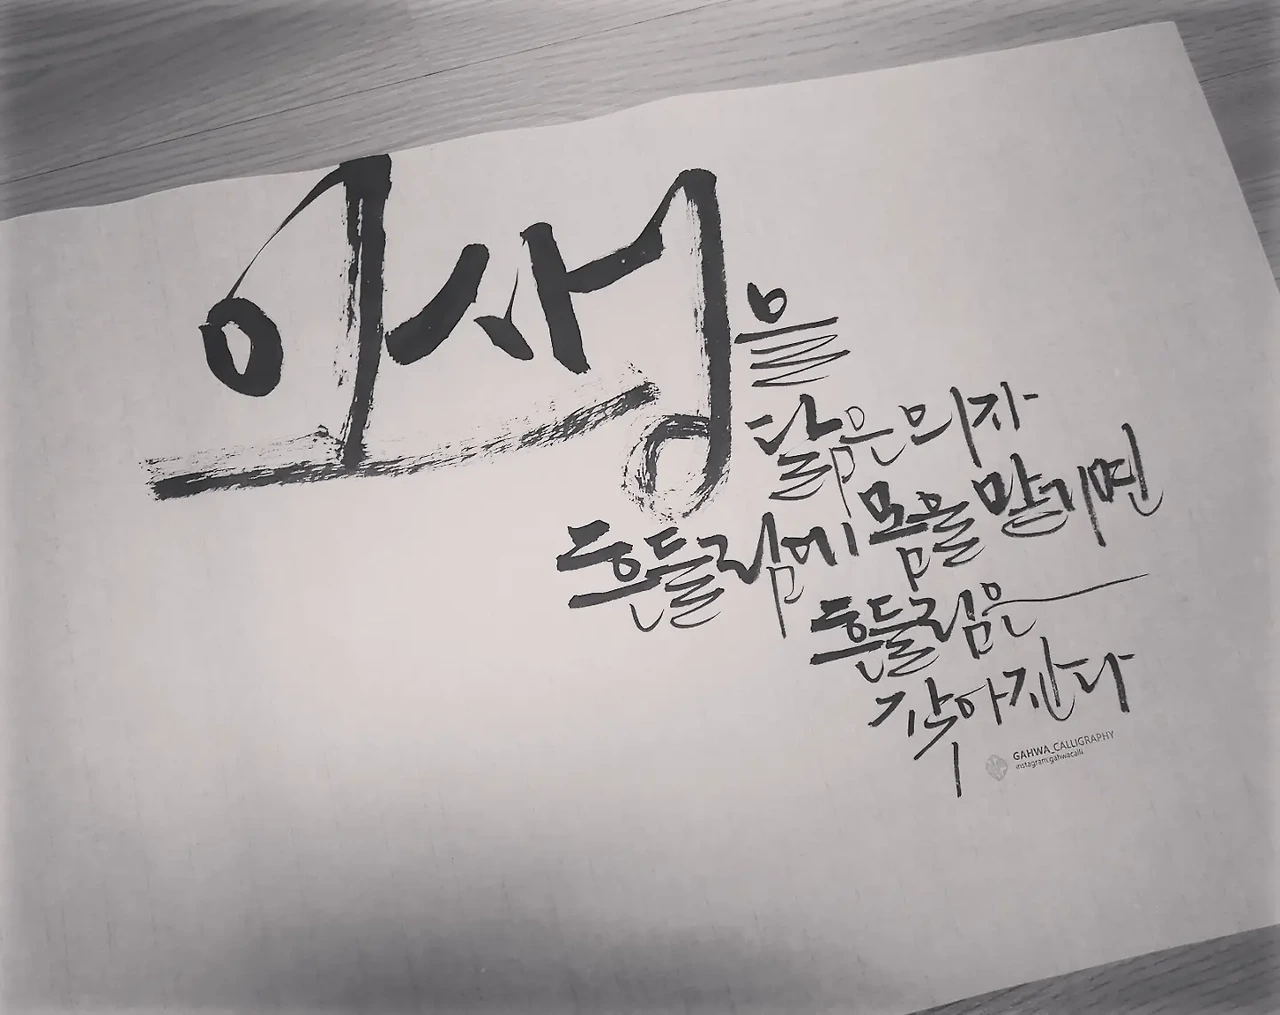 인생을
닮은 의자
흔들림에 몸을 맡기면
흔들림은
작아진다
GAHWA_CALLIGRAPHY
instagram:gahwacalli